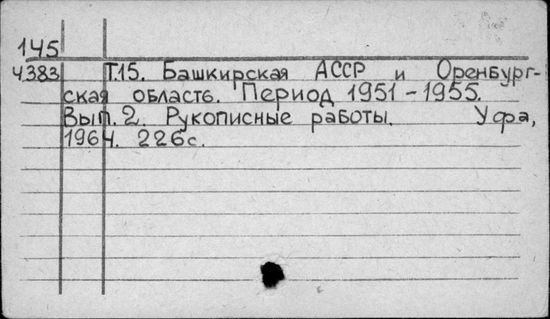 145
4383 Т.15. Башкирская АССР и Оренбург-
ская область. Период 1951-1955.
Вып.2. Рукописные работы. Уфа,
1964. 226с.